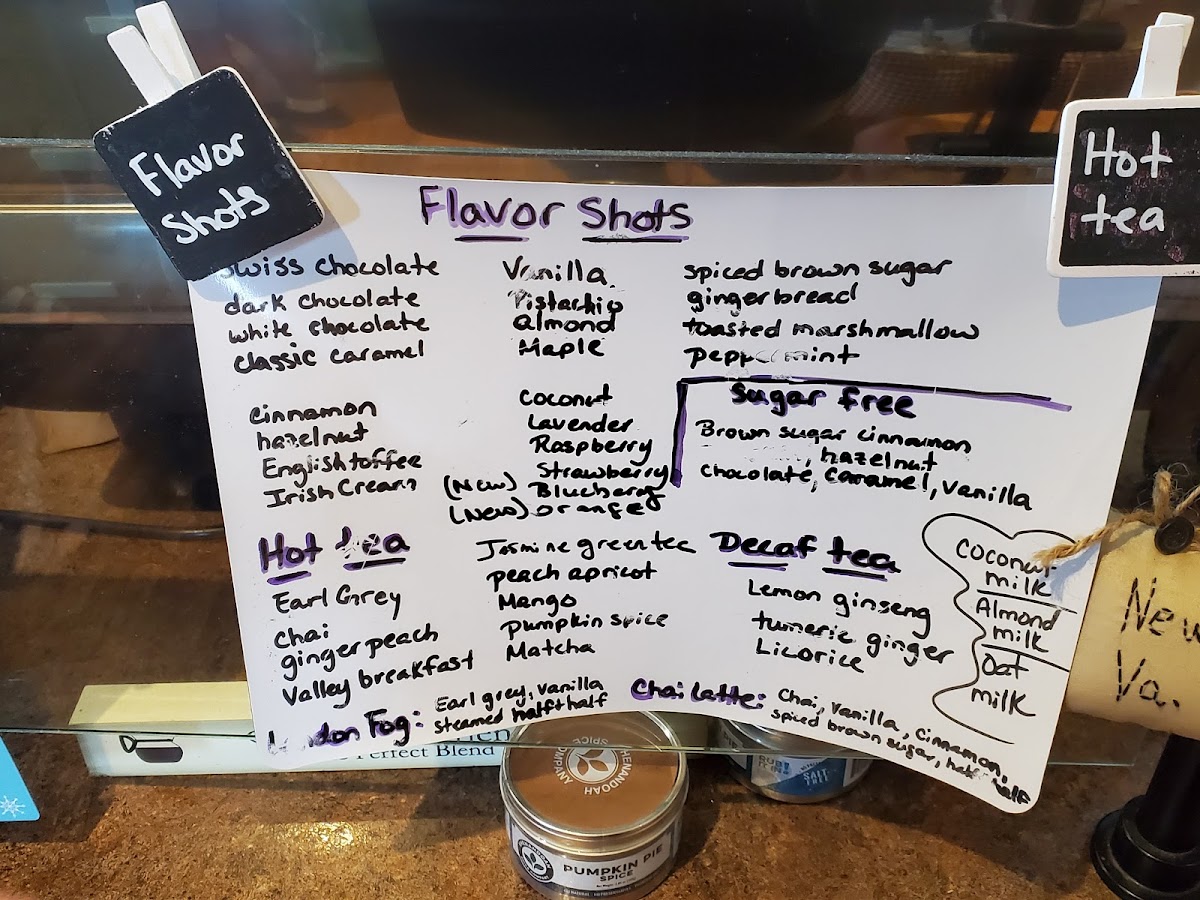 Flavor
Shots
Hot
tea
Flavor Shots
Swiss chocolate
dark chocolate
white chocolate
classic caramel
cinnamon
hazelnut
English toffee
Irish Cream
Vanilla
Pistachio
almond
Maple
coconut
Lavender
Raspberry
Strawberry
(New) Blueberry
(New) orange
spiced brown sugar
gingerbread
toasted marshmallow
peppermint
Sugar free
Brown sugar cinnamon
, hazelnut
chocolate, caramel, vanilla
Hot tea
Earl Grey
chai
ginger peach
Valley breakfast
Jasmine green tea
peach apricot
Mango
pumpkin spice
Matcha
Decaf tea
Lemon ginseng
tumeric ginger
Licorice
coconut
milk
Almond
milk
Oat
milk
London Fog: Earl grey, vanilla
steamed half + half
Chai Latte: Chai, vanilla, cinnamon,
spiced brown sugar, half half
New
Va.
Perfect Blend
SHENANDOAH
SPICE COMPANY
PUMPKIN PIE
SPICE
SALT
FREE